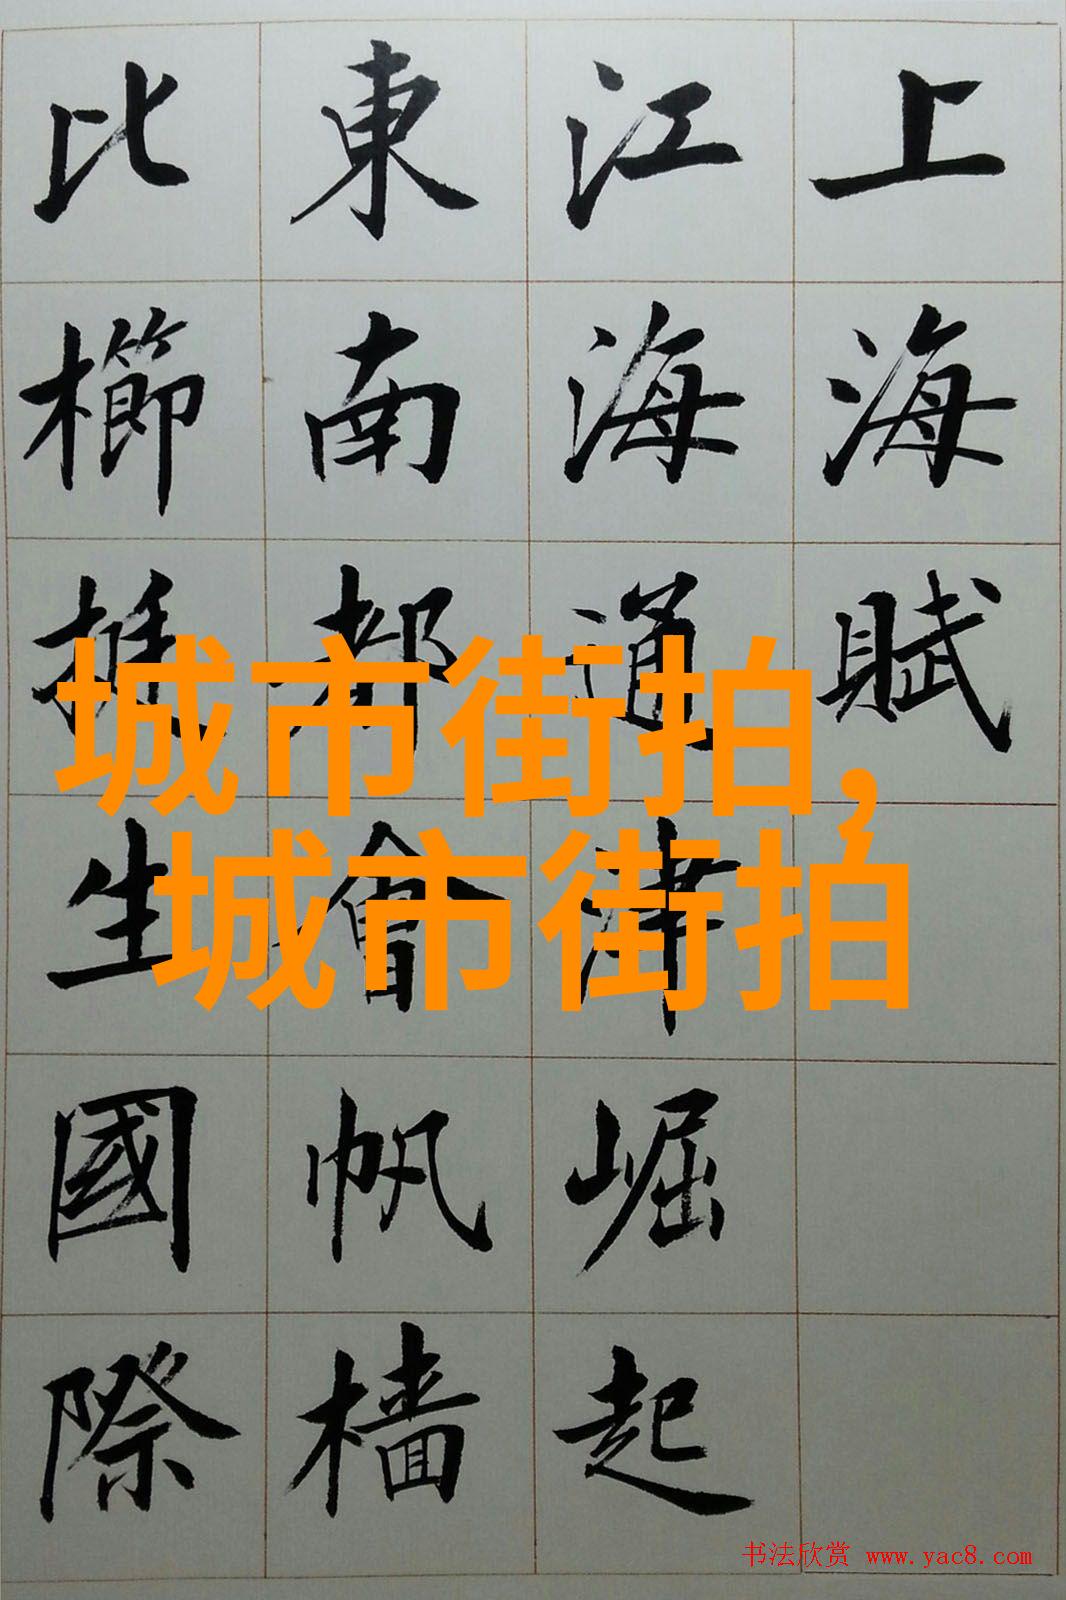 上海賦
江海通津崛起
東南都會帆樯
比櫛挺生國際
城市街拍,
城市街拍
书法欣赏 www.yac8.com